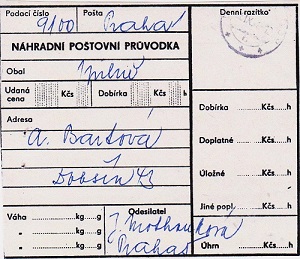 Podací číslo Pošta Denní razítko
9100 Praha
NÁHRADNÍ POŠTOVNÍ PRŮVODKA
Obal
Udaná cena Kčs Dobírka Kčs h
Adresa
A. Bartová
Dobšín 43
Dobírka Kčs h
Doplatné Kčs h
Úložné Kčs h
Jiné popl. Kčs h
Úhrn Kčs h
Váha kg g
" kg g
" kg g
Odesilatel
Praha